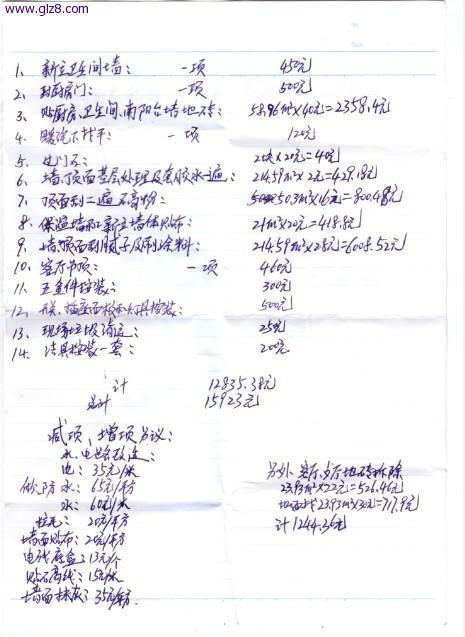 www.glz8.com
1、新立卫生间墙： 一项 450元
2、封厨房门： 一项 500元
3、贴厨房、卫生间、南阳台墙地砖： 58.96m²×40元=2358.4元
4、暖洗下找平： 一项 120元
5、过门石： 2块×20元=40元
6、墙、顶面基层处理及套胶水一遍： 214.59m²×2元=429.18元
7、顶面刮二遍石膏粉： 50.3m²×16元=800.48元
8、保温墙和新立墙体贴布： 21m²×20元=418.8元
9、墙、顶面刮腻子及刷涂料： 214.59m²×28元=6008.52元
10、客厅吊顶： 一项 460元
11、五金件按装： 300元
12、开关、插座面板和灯具按装： 500元
13、现场垃圾清运： 250元
14、洁具按装一套： 200元
计 12835.38元
总计 15923元
减项，增项另议：
水、电路改造：
电：35元/米
做防水：65元/平方
水：60元/米
拉毛：20元/平方
墙面贴布：20元/平方
电线底盒：13元/个
贴石膏线：15元/米
墙面抹灰：35元/平方
另外 客厅、歺厅地砖拆除
23.93m²×22元=526.46元
地面找平23.93m²×30元=717.9元
计1244.36元